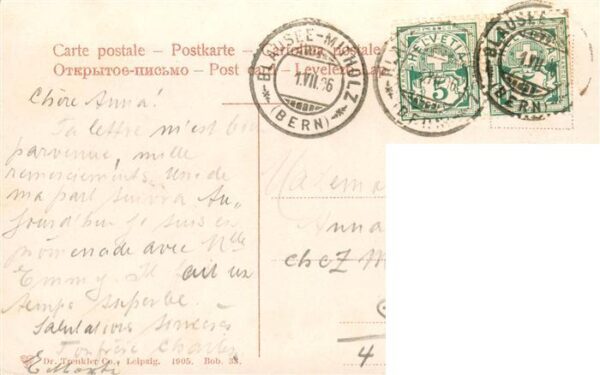 Carte postale – Postkarte – Cartolina postale –
Открытое-письмо – Post card – Levelező-Lap
BLAUSEE-MITHOLZ
1.VII.06
(BERN)
HELVETIA
5
Chère Anna!
Ta lettre m'est bien
parvenue, mille
remerciements. Une de
ma part suivra. Au-
jourd'hui je suis en
promenade avec Mlle
Emmy. Il fait un
temps superbe.
Salutations sincères
Charles
Mademoi
Anna
chez M
4
Dr. Trenkler Co., Leipzig. 1905. Bob. 33.